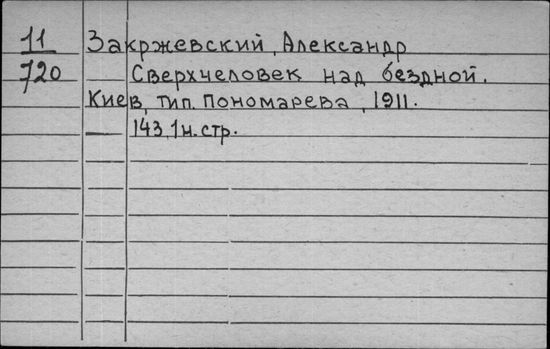 11 Закржевский, Александр
720 Сверхчеловек над бездной.
Киев, тип. Пономарева, 1911.
143, 1 н. стр.